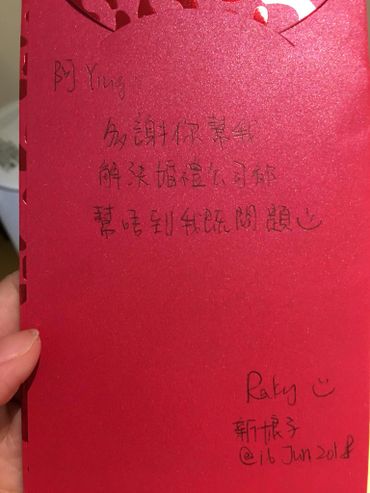 阿 Ying
多謝你幫我
解決婚禮公司都
幫唔到我既問題
Raky
新娘子
@16 Jun 2018